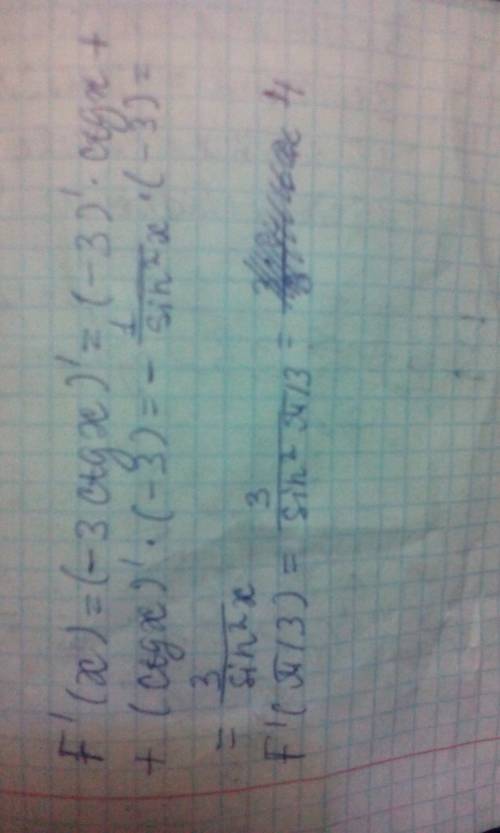 F'(x) = (-3 ctgx)' = (-3)' · ctgx +
+ (ctgx)' · (-3) = - 1/sin²x · (-3) =
= 3/sin²x
F'(π/3) = 3/sin² π/3 = 4